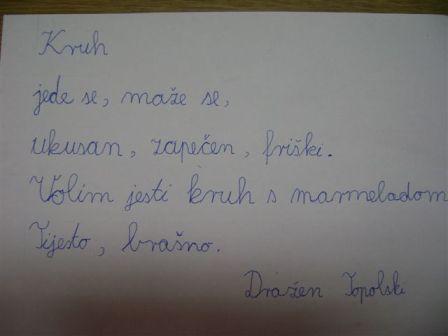 Kruh
jede se, maže se,
ukusan, zapečen, friški.
Volim jesti kruh s marmeladom
Tijesto, brašno.
Dražen Topolski